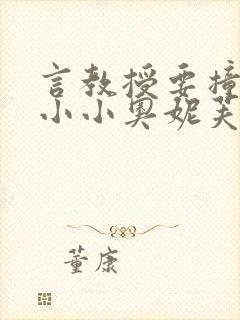 言教授要撞
小小奥妮芙
董康